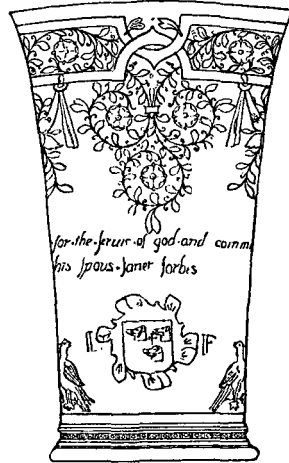 for·the·seruic·of god·and comm
his spous·Janet forbes
L F